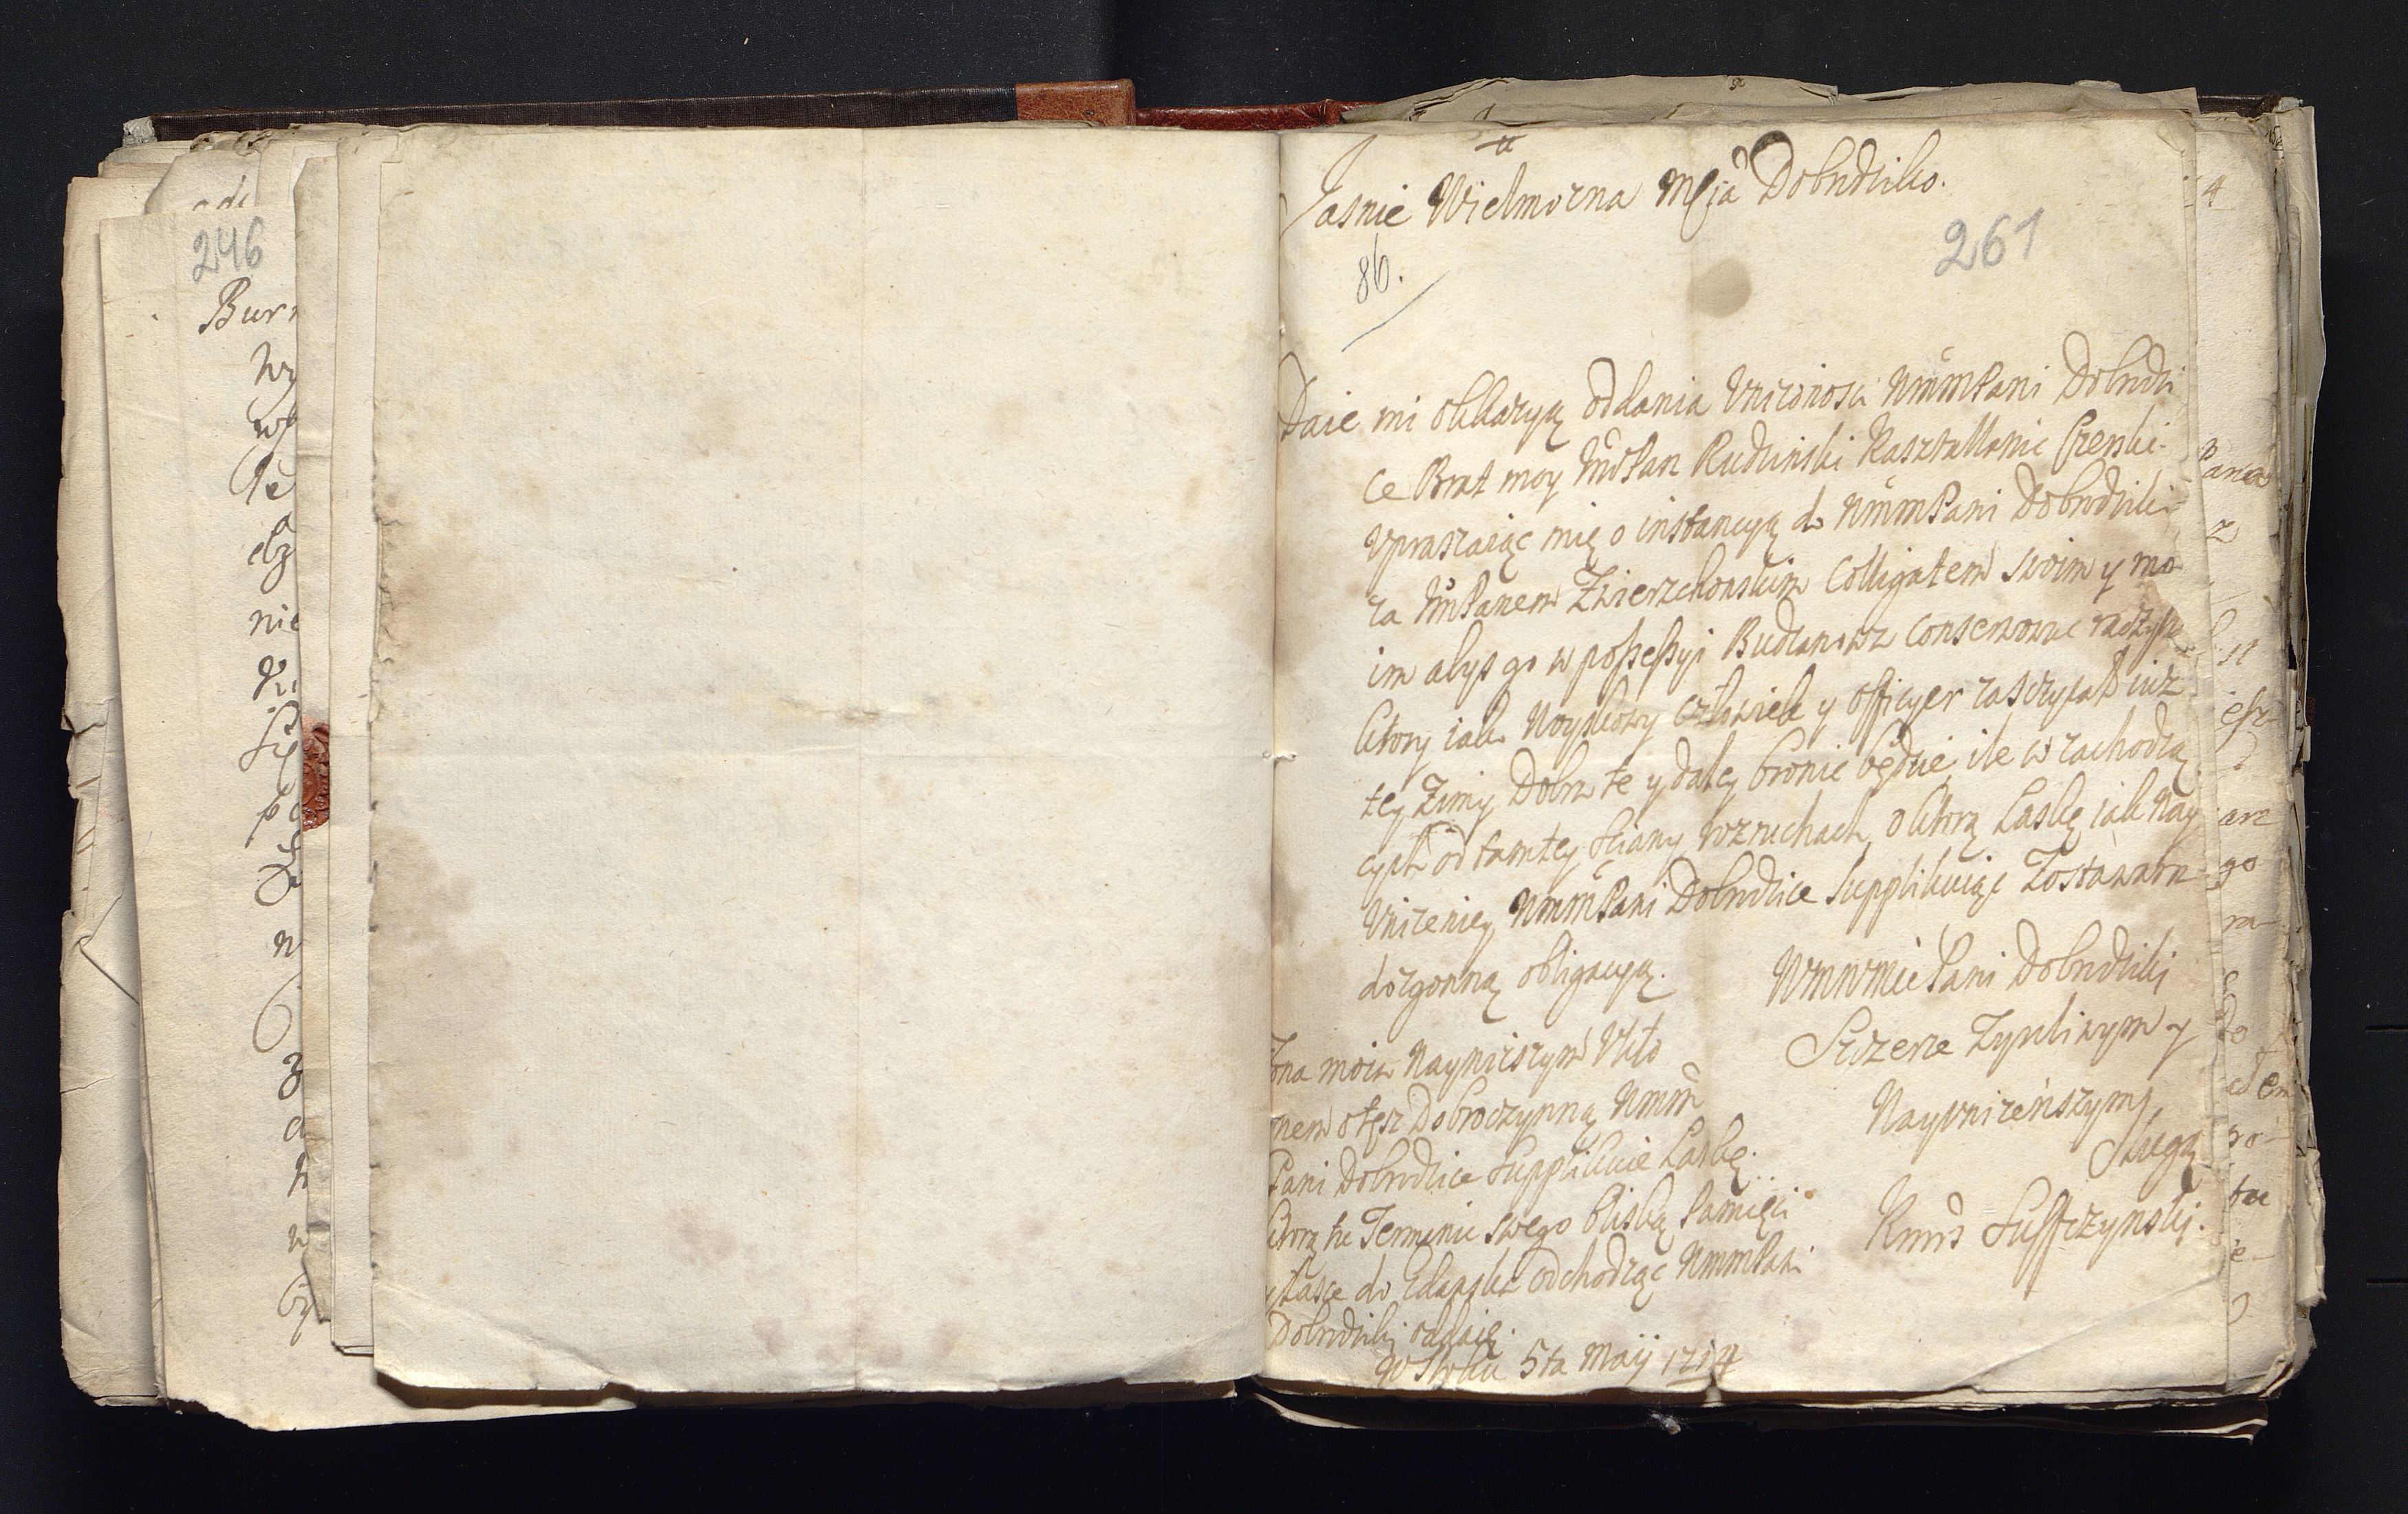 246
Jasnie Wielmozna Mcia Dobrdziko.
86.
261
Daie mi okkazyą oddania Vnizonosci Wmm Pani Dobrdzi
ce Brat moy Imsc Pan Rudzinski Kasztellanic Czerski
Vpraszaiąc mię o instancyą do Wmm Pani Dobrodziki
za Im Panem Zwierzchowskim Colligatem swoim y mo
im abys go w possessyi Budzanowa conserwowac raczyła
ktory iako Woyskowy człowiek y officyer zaszczycał iuż
tey Zimy Dobra te y daley bronic będzie, ile w zachodzą
cych od tamtey sciany wzruchach, o ktorą Łaskę iak Nay
Vnizeniey Wmm Pani Dobrdzice supplikuiąc Zostawam
dozgonną obligacyą.
WmmMci Pani Dobrdziki
Szczerze Zyczliwym y
Nayvnizenszymi
Sługą
Kmws Suffczynski.
Zona moia Nayniższym Vkło
nem o tęsz Dobroczynną Wmm
Pani Dobrodzice supplikuie Łaskę.
ktora tu Terminu swego bliska Pamięci
y łasce do Gdanska odchodząc Wmm Pani
Dobrdziki oddaię.
5ta Maij 1714